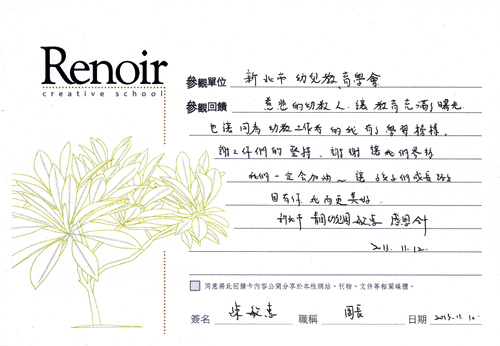 Renoir
creative school
參觀單位 新北市幼兒教育學會
參觀回饋 慈悲的幼教人,讓教育充滿曙光
也讓同為幼教工作者的我有了學習榜樣,
謝謝你們的堅持,謝謝讓我們參訪
我們一定會加油~讓孩子們成長
因有你我而更美好.
新北市 幼幼園 敏惠 感恩
2013.11.12.
同意將此回饋卡內容公開分享於本校網站、刊物、文件等相關媒體。
簽名 敏惠 職稱 園長 日期 2013.11.12.